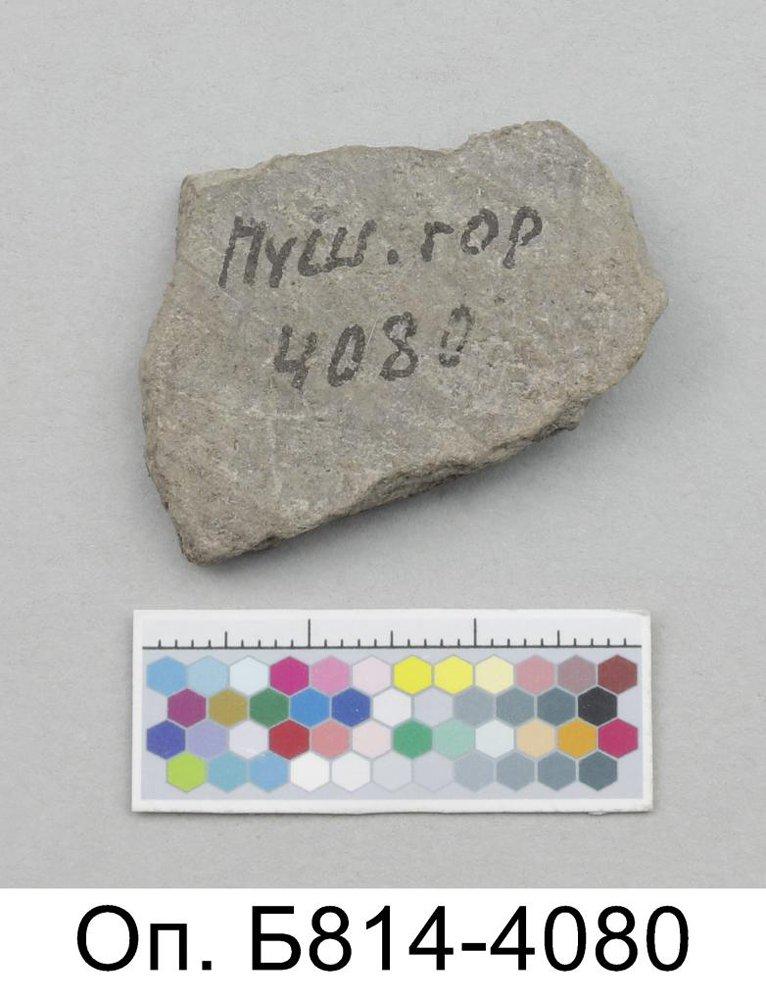 Пуш. гор
4080
Оп. Б814-4080